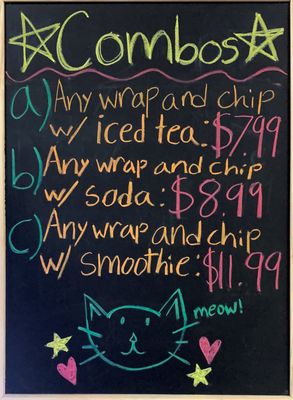 Combos
a) Any wrap and chip
w/ iced tea: $7.99
b) Any wrap and chip
w/ soda: $8.99
c) Any wrap and chip
w/ smoothie: $11.99
meow!